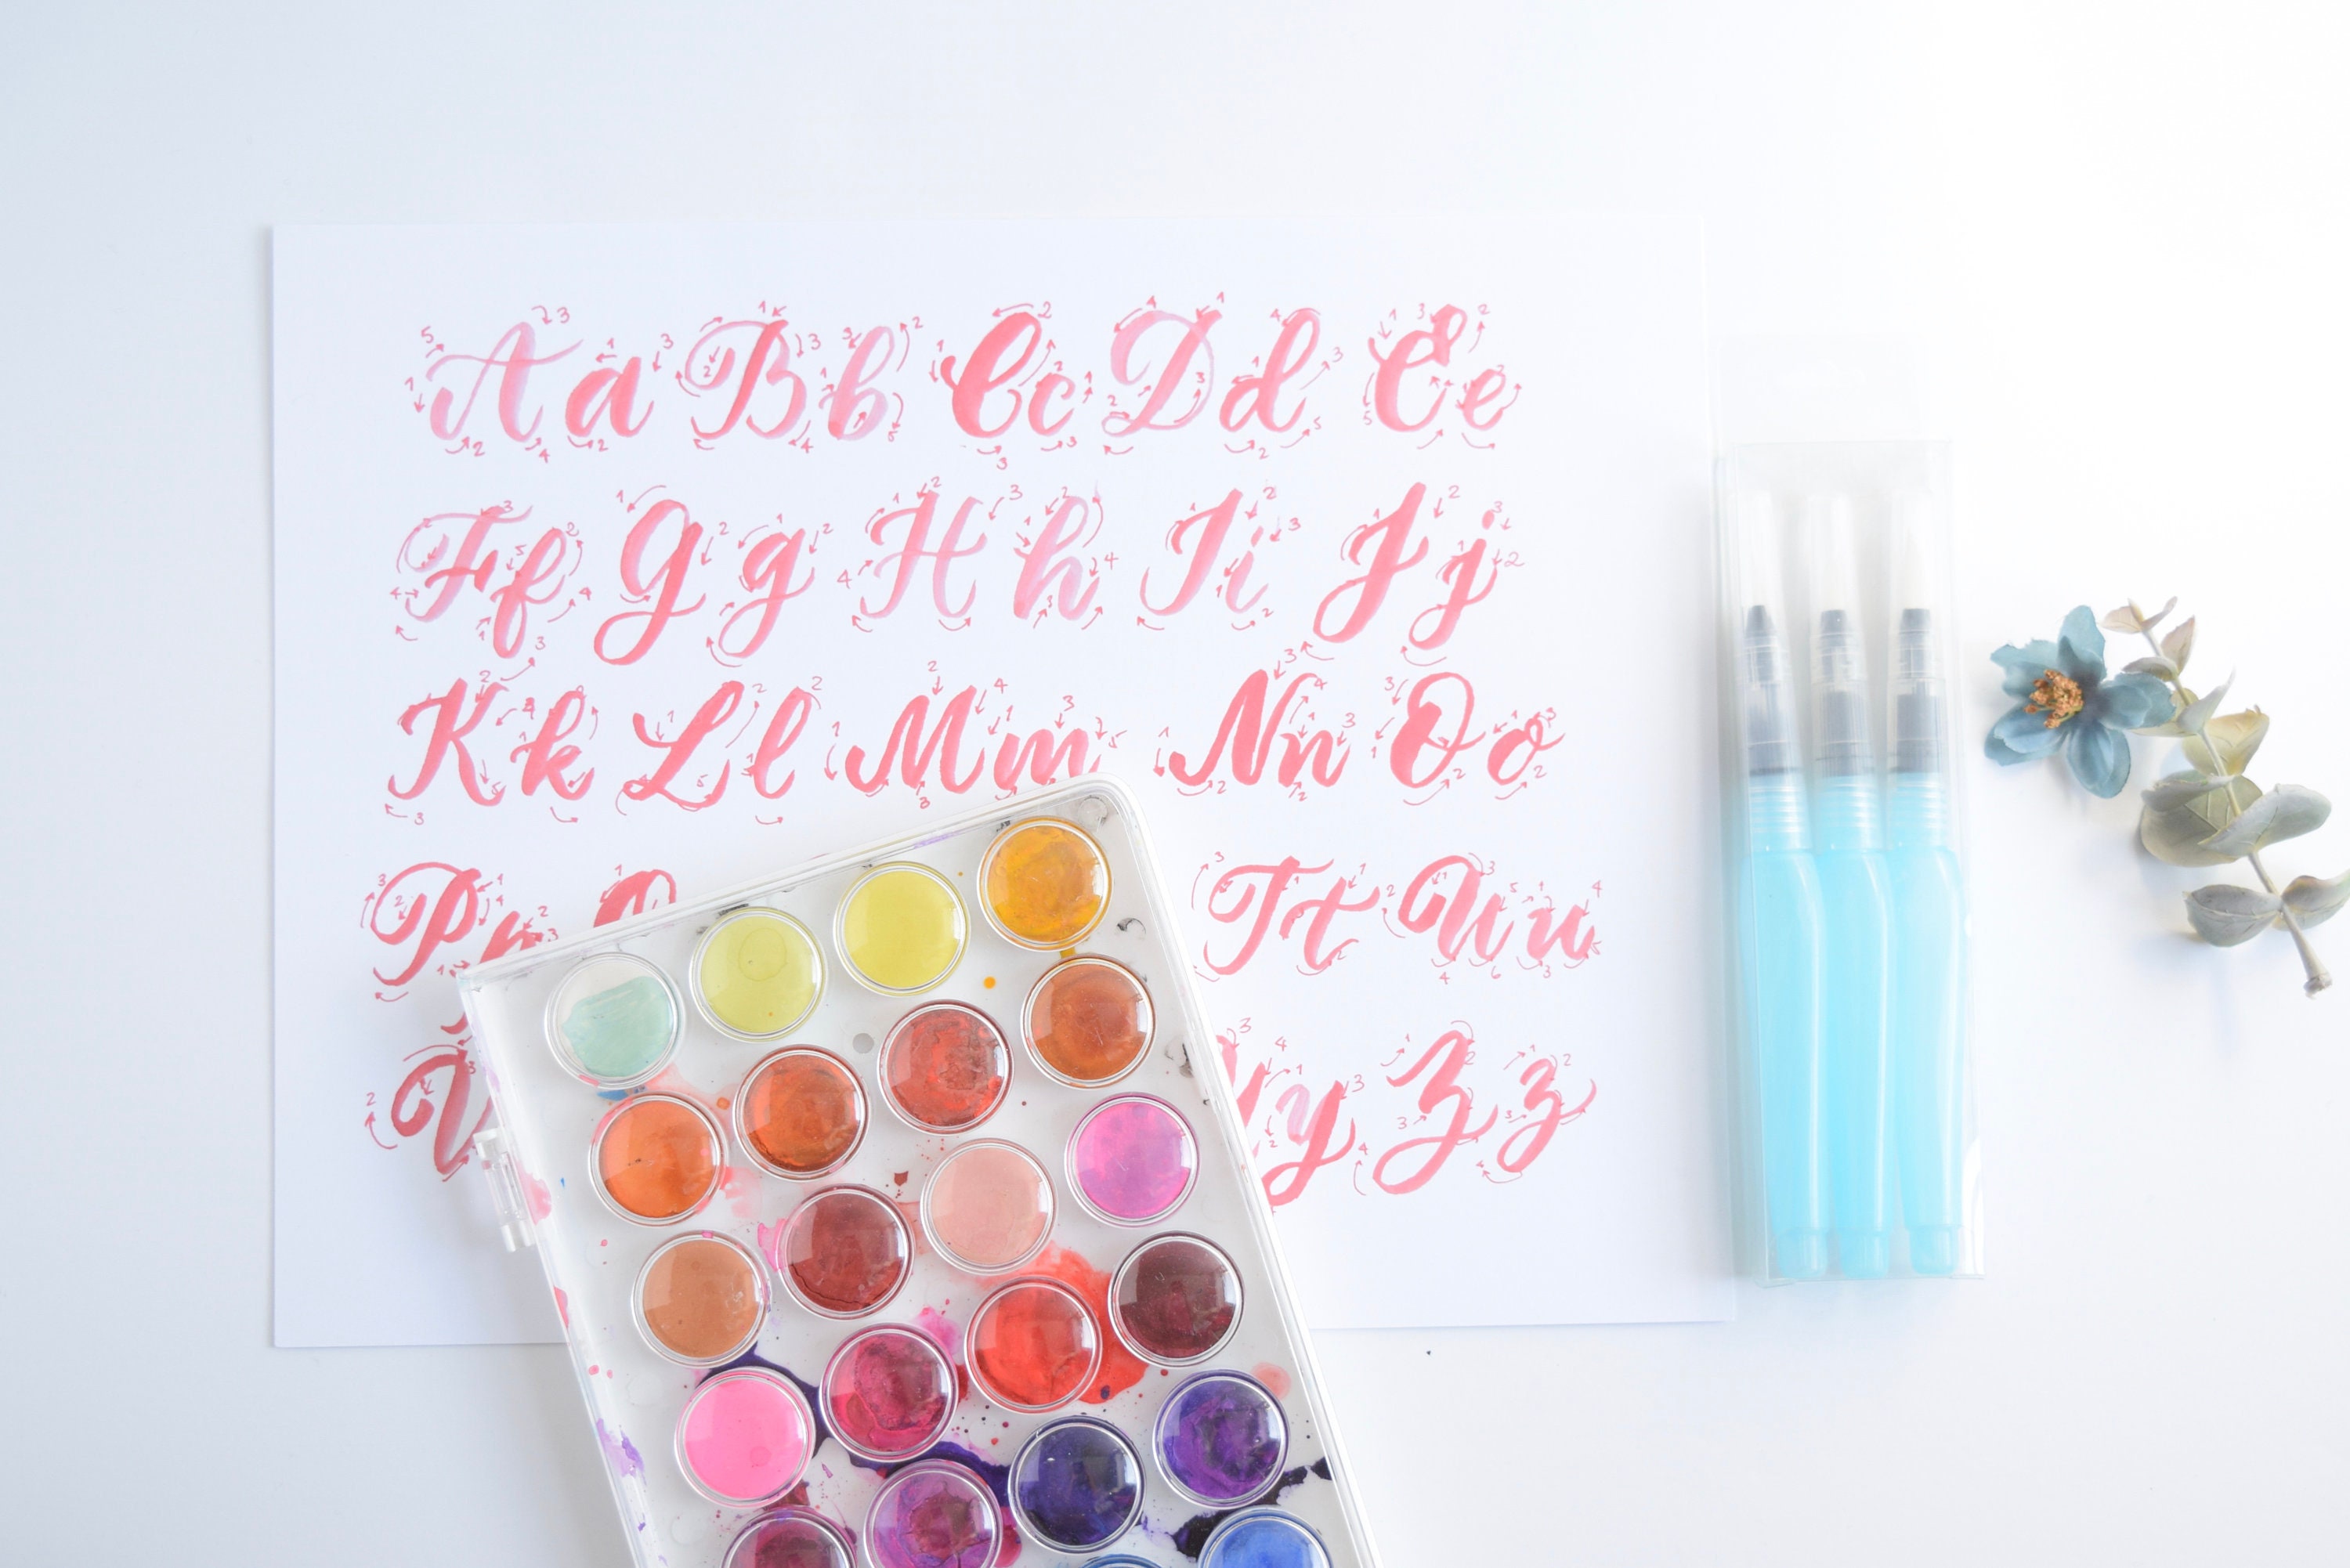 Aa Bb Cc Dd Ee
Ff Gg Hh Ii Jj
Kk Ll Mm Nn Oo
Pp Tt Uu
V y Zz